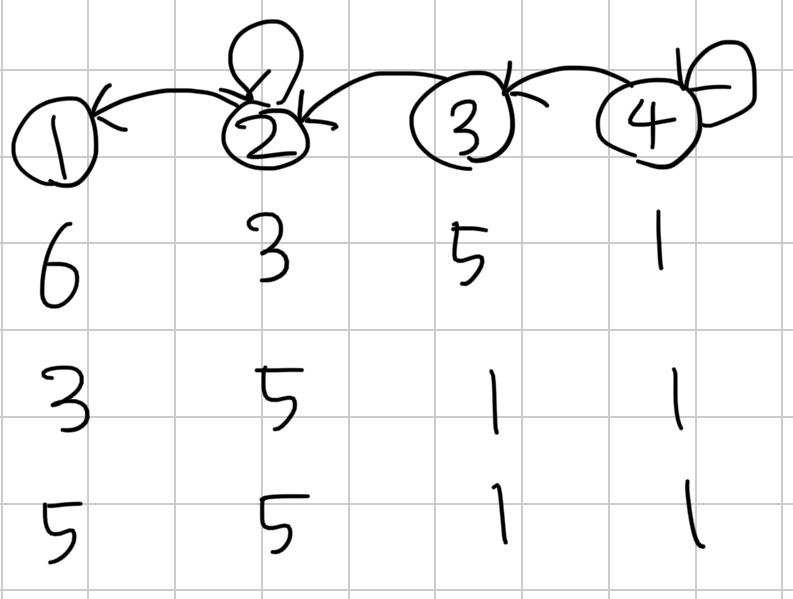 1 2 3 4
6 3 5 1
3 5 1 1
5 5 1 1